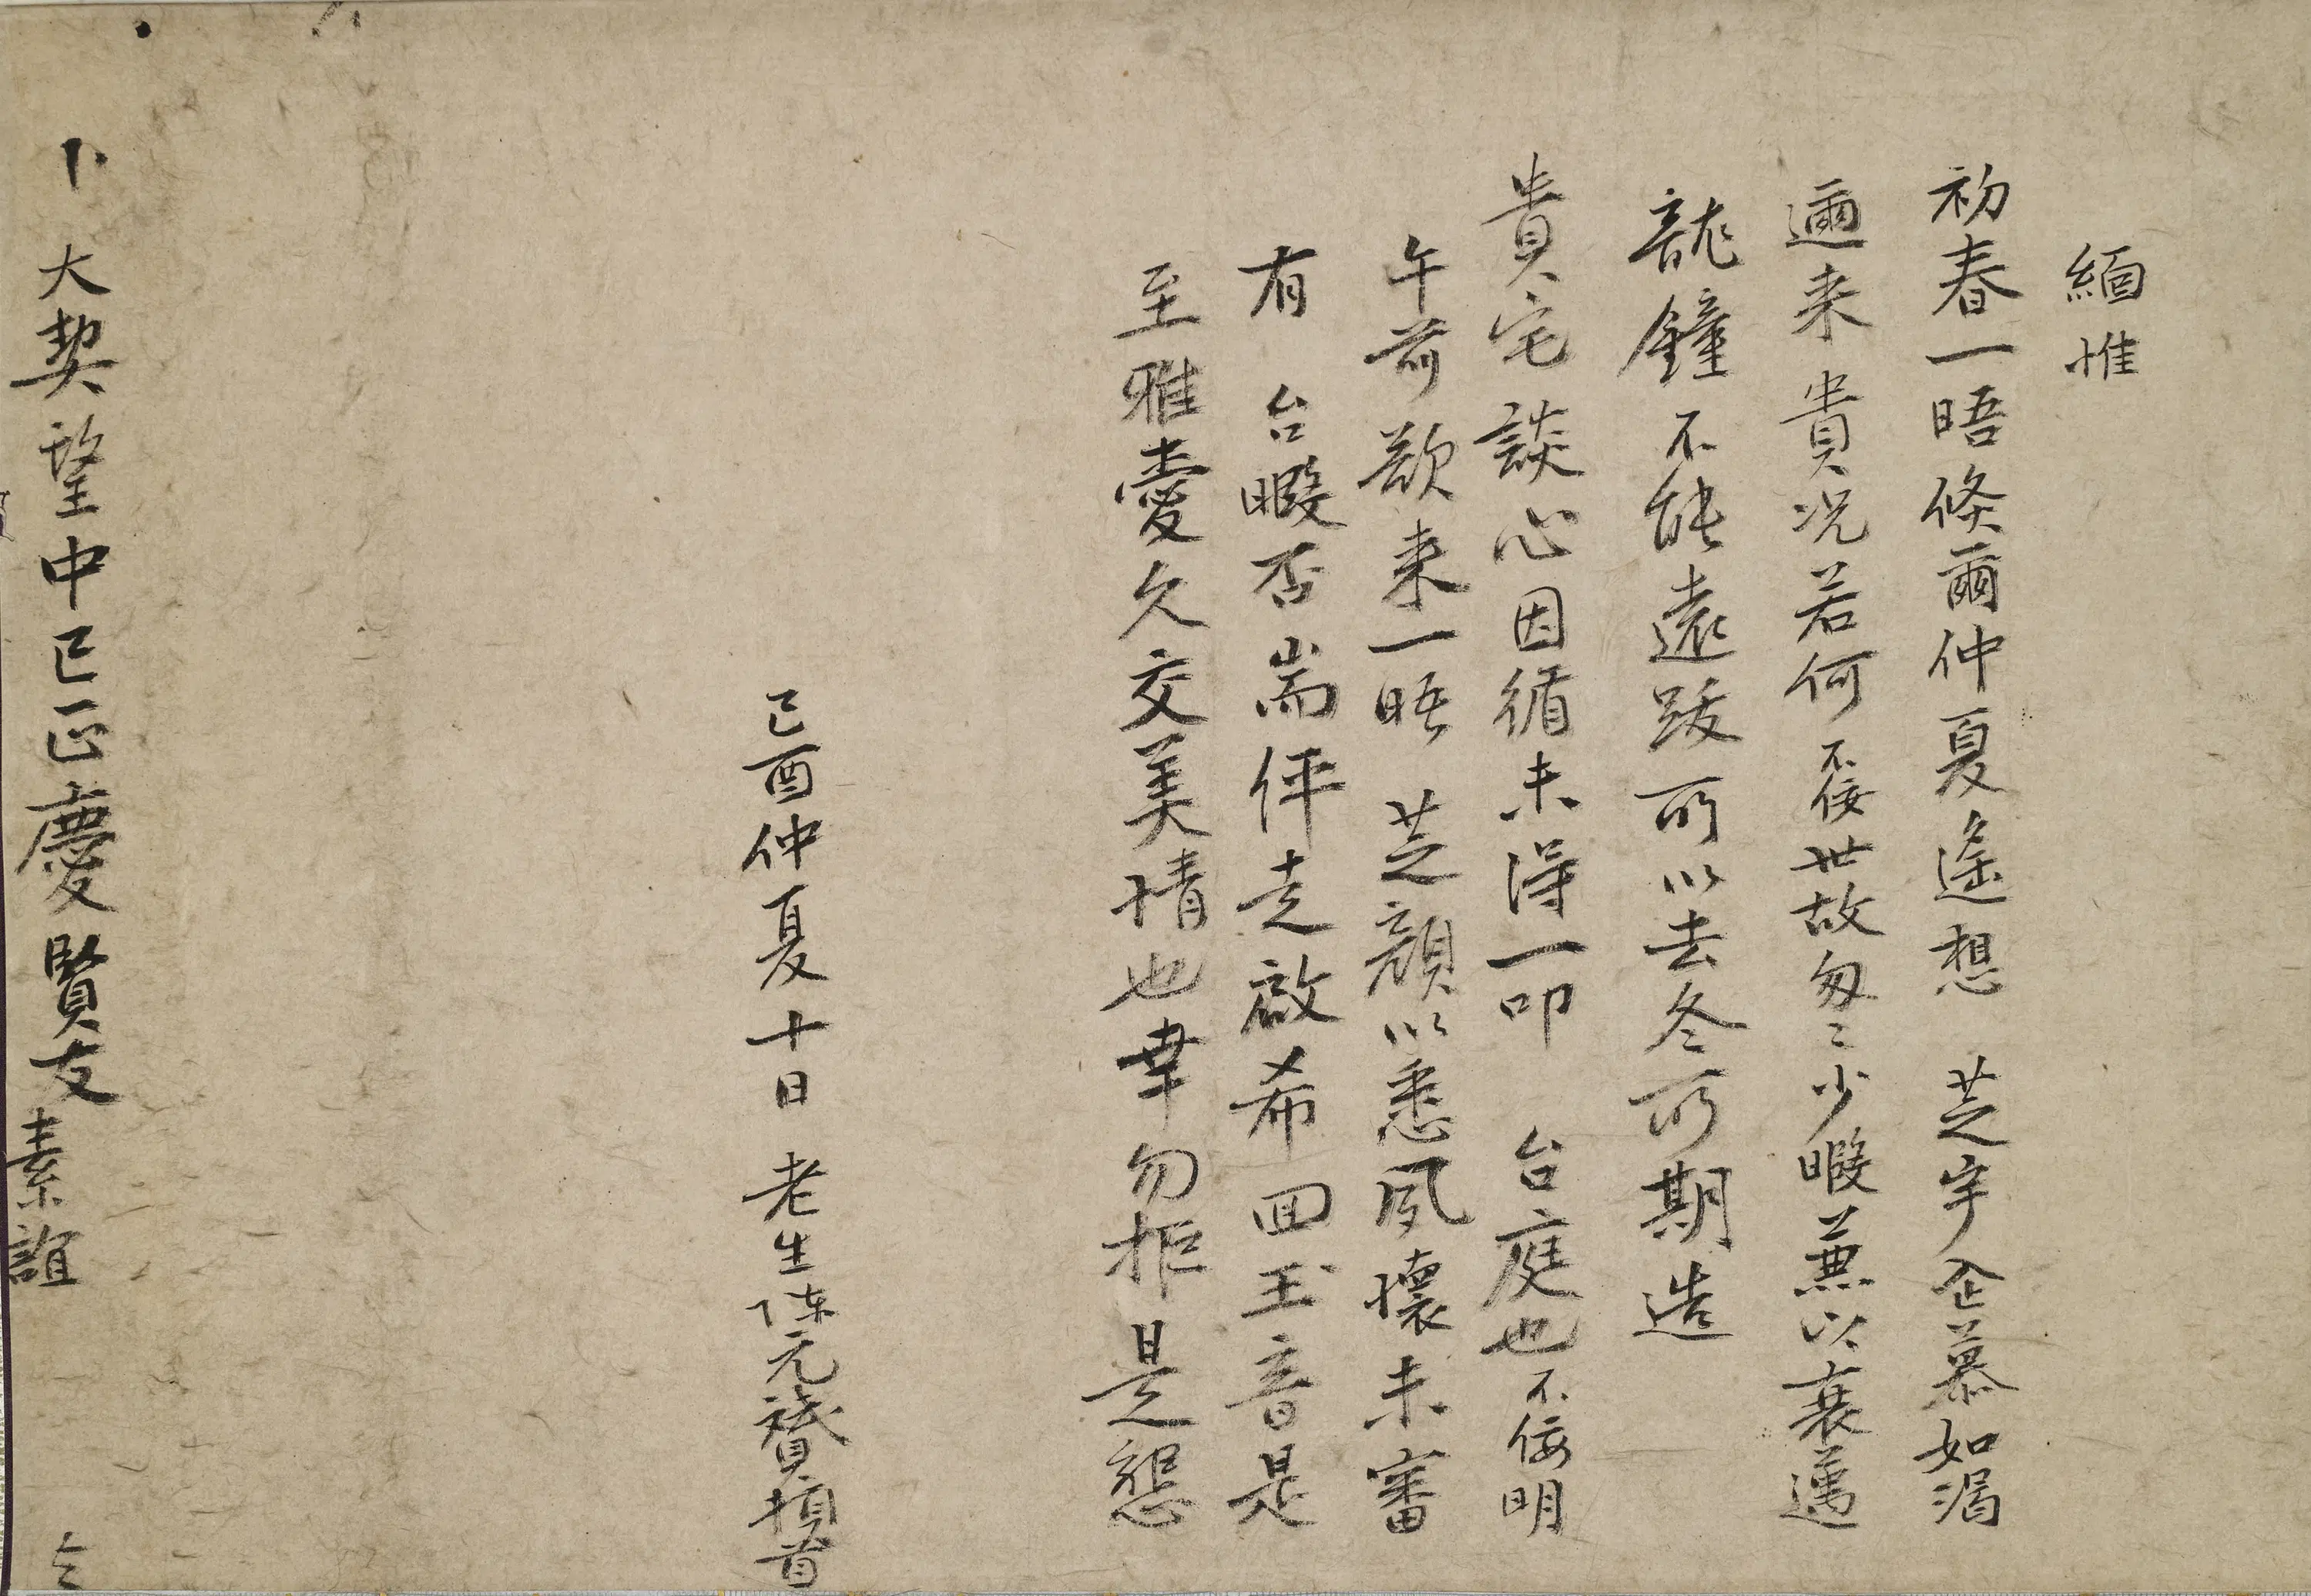 緬惟
初春一晤倏爾仲夏遙想 芝宇企慕如渴
邇来 貴況若何不佞世故匆〻少暇兼以衰邁
龍鐘不能遠跋所以去冬所期造
貴宅談心因循未得一叩 台庭也不佞明
午前欲来一晤 芝顏以悉夙懷未審
有 台暇否耑伻走啟希回玉音是
至雅愛久交美情也幸勿拒是懇
己酉仲夏十日 老生陳元贇頓首
卜 大契望中已正慶賢友素誼